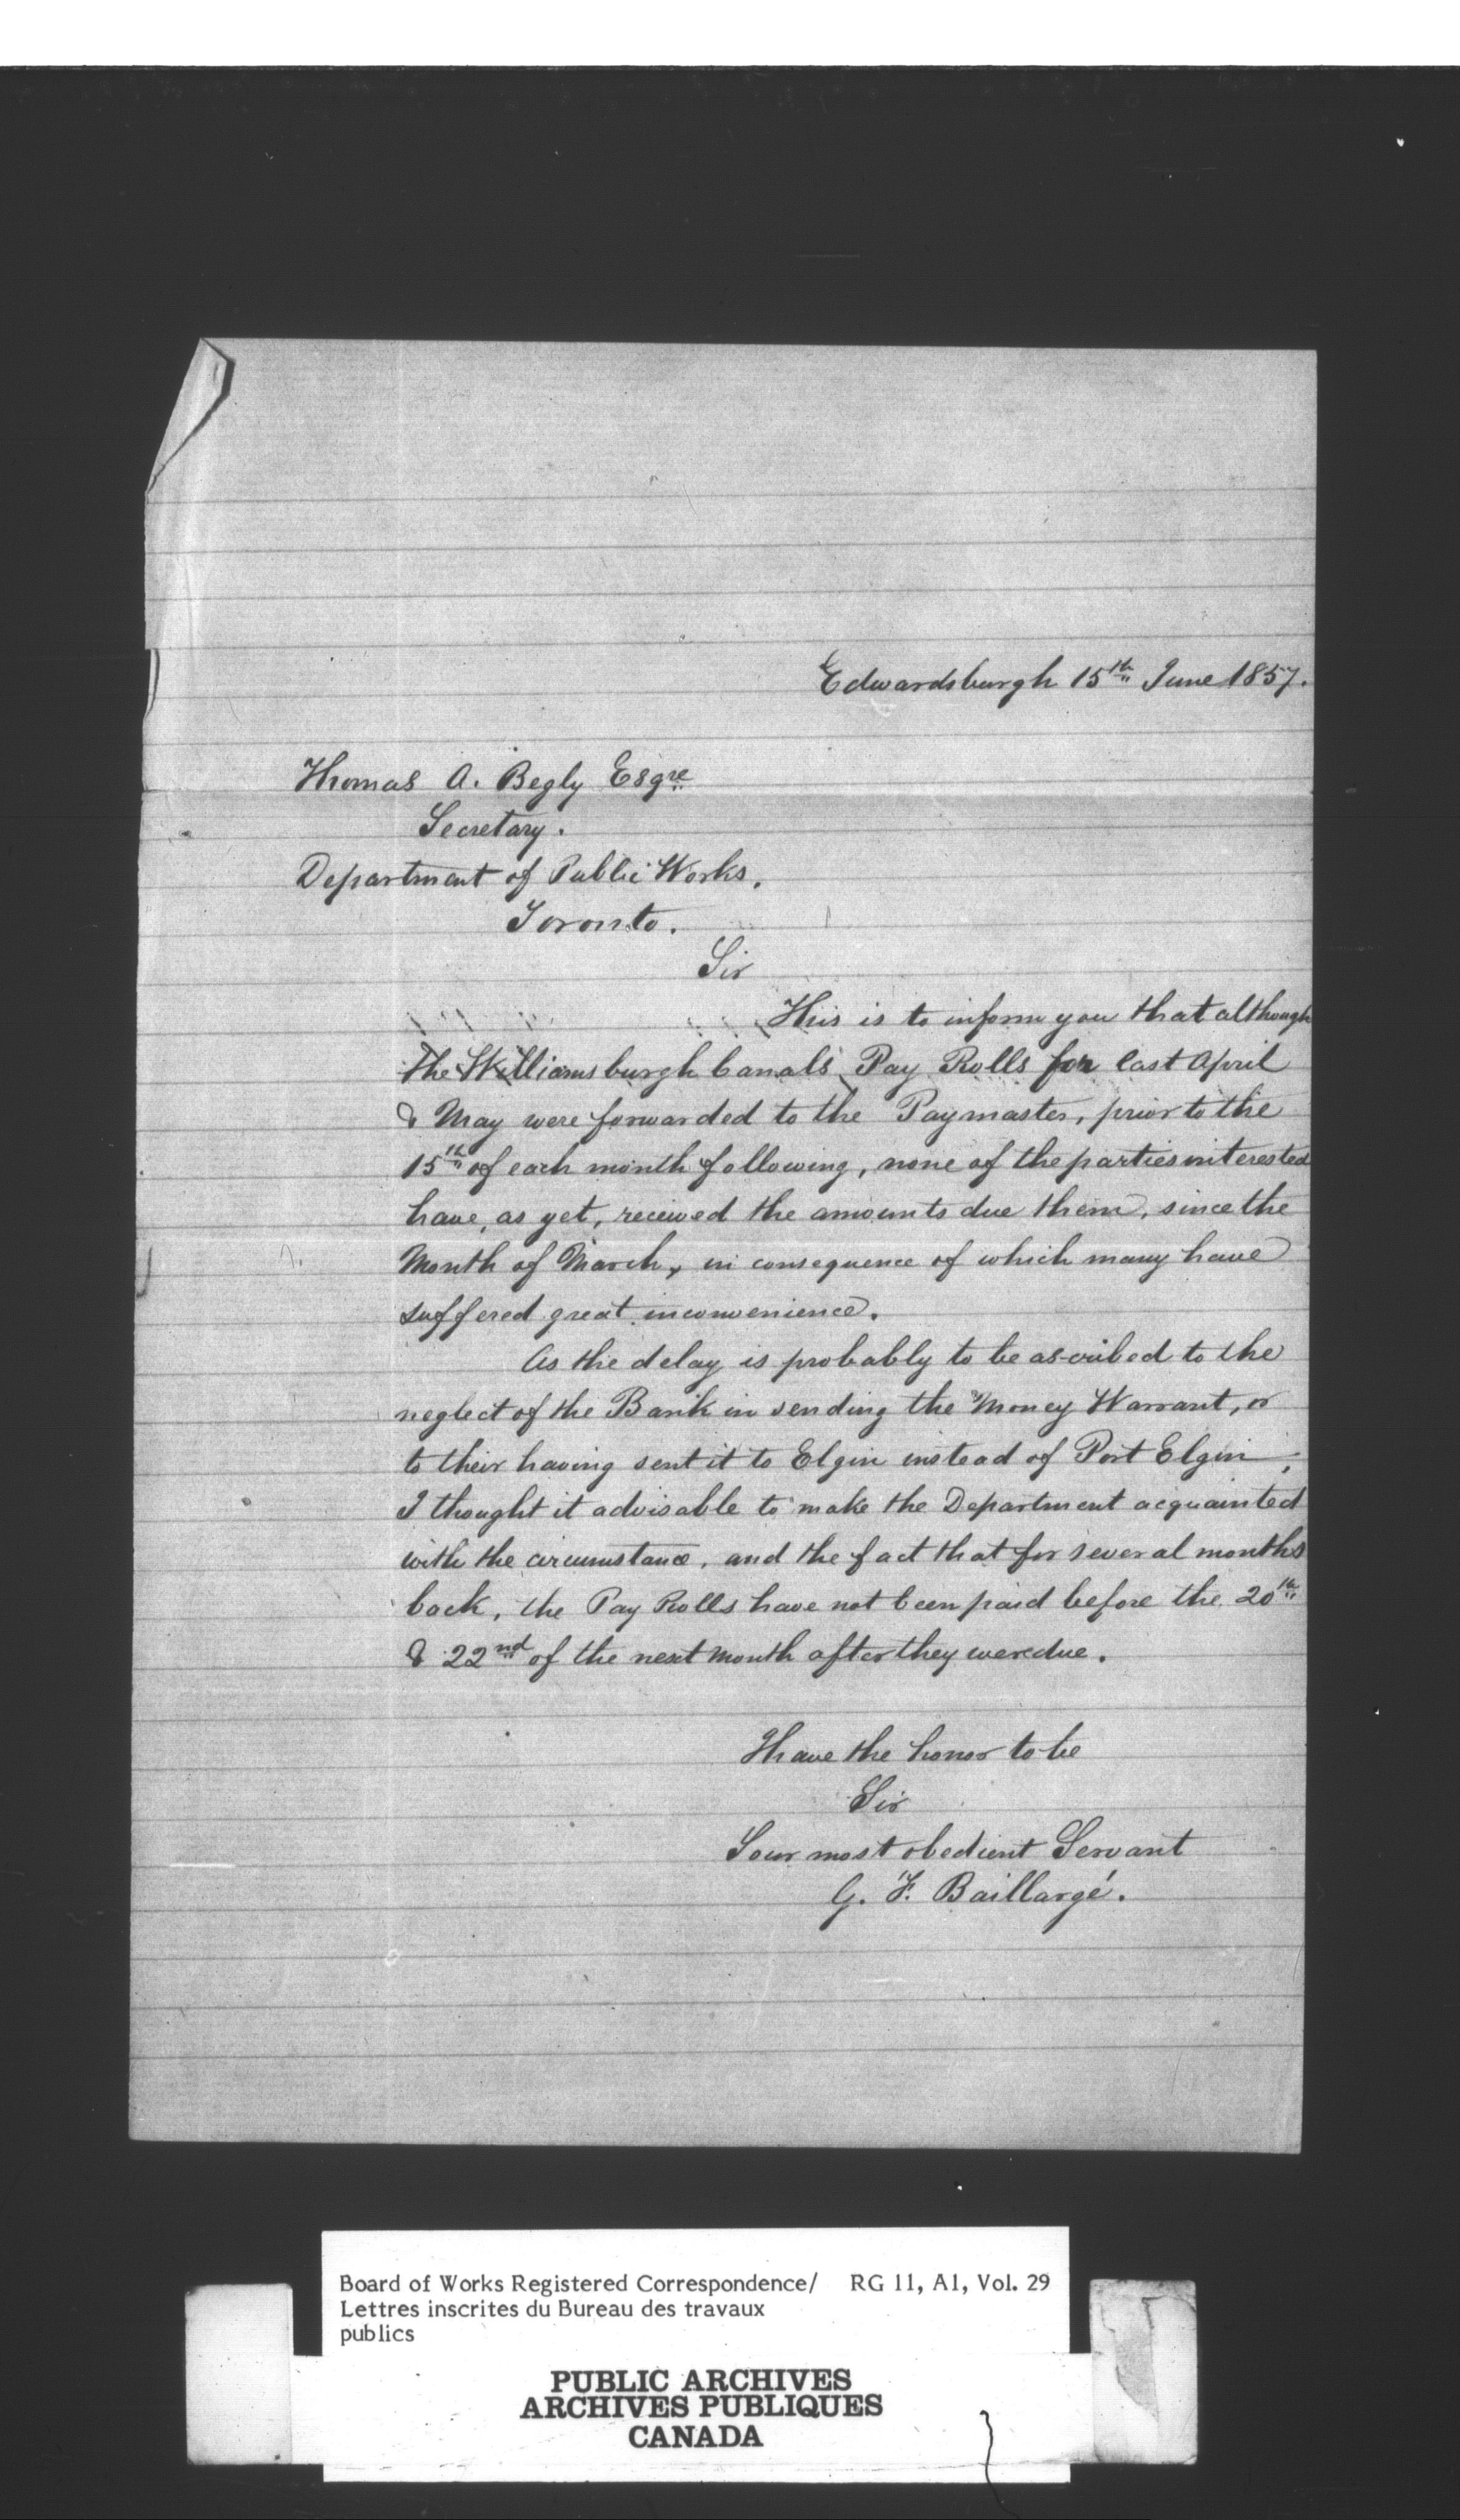 Edwardsburgh 15th June 1857.
Thomas A. Begly Esqre
Secretary.
Department of Public Works,
Toronto.
Sir
This is to inform you that although
the Williamsburgh Canals Pay Rolls for last April
& May were forwarded to the Paymaster, prior to the
15th of each month following, none of the parties interested
have, as yet, received the amounts due them, since the
Month of March, in consequence of which many have
suffered great inconvenience.
As the delay is probably to be ascribed to the
neglect of the Bank in sending the Money Warrant, or
to their having sent it to Elgin instead of Port Elgin;
I thought it advisable to make the Department acquainted
with the circumstance, and the fact that for several months
back, the Pay Rolls have not been paid before the 20th
& 22nd of the next month after they were due.
I have the honor to be
Sir
Your most obedient Servant
G. F. Baillargé.
Board of Works Registered Correspondence/ RG 11, A1, Vol. 29
Lettres inscrites du Bureau des travaux
publics
PUBLIC ARCHIVES
ARCHIVES PUBLIQUES
CANADA